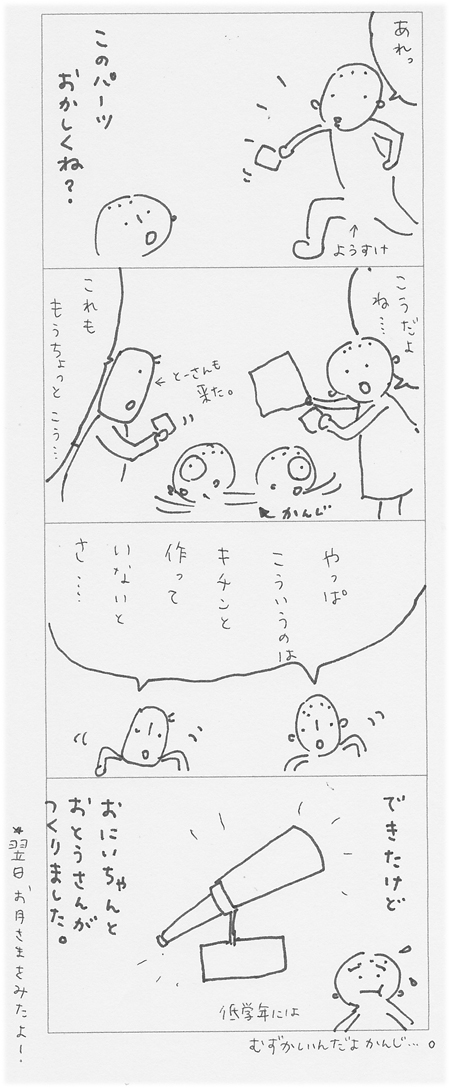 あれっ
ようすけ
このパーツ
おかしくね?
こうだよ
ね…
とーさんも
来た。
これも
もうちょっと こう…
かんじ
やっぱ
こういうのは
キチンと
作って
いないと
さ……
できたけど
おにいちゃんと
おとうさんが
つくりました。
低学年には
むずかいんだよ かんじ…。
*翌日 お月さまをみたよー!